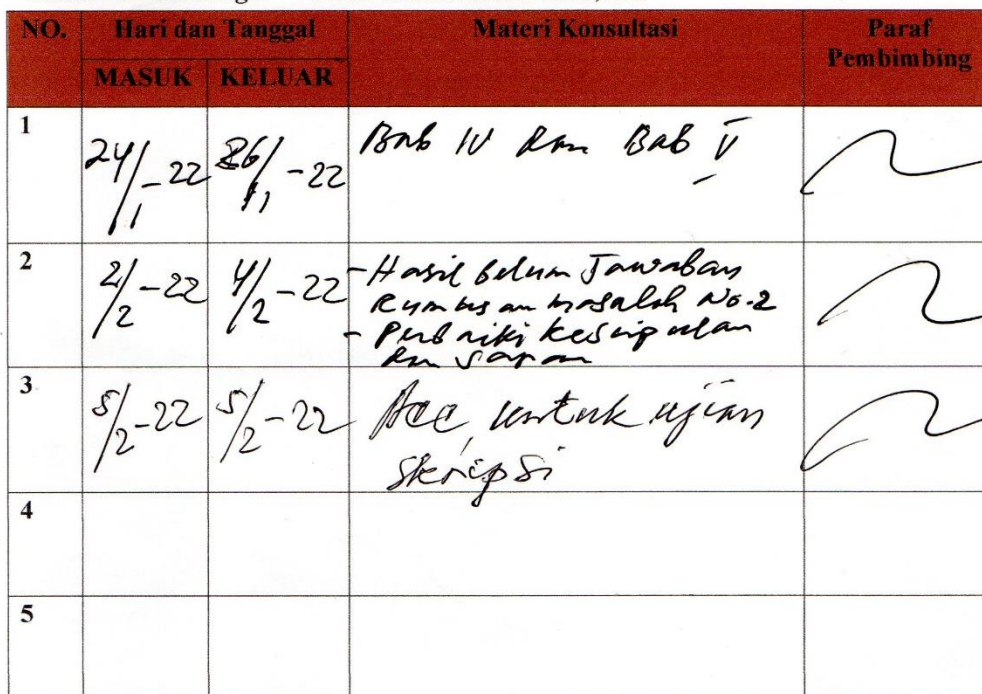 NO. Hari dan Tanggal Materi Konsultasi Paraf
Pembimbing
MASUK KELUAR
1 24/1-22 26/1-22 Bab IV dan Bab V
2 2/2-22 4/2-22 - Hasil belum Jawaban
Rumusan masalah No.2
- Perbaiki kesimpulan
dan saran
3 5/2-22 5/2-22 Acc, untuk ujian
skripsi
4
5